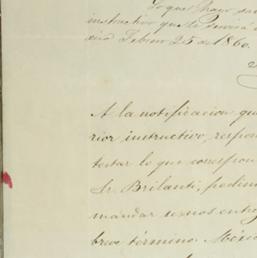 Lo que hago sa
instructivo que le servirá
xico Febro 25 de 1860.
A la notificacion que
rior instructivo, respon
testar lo que correspon
Sr. Brilanti, pedim
mandar senos entreg
breve término. Mexico